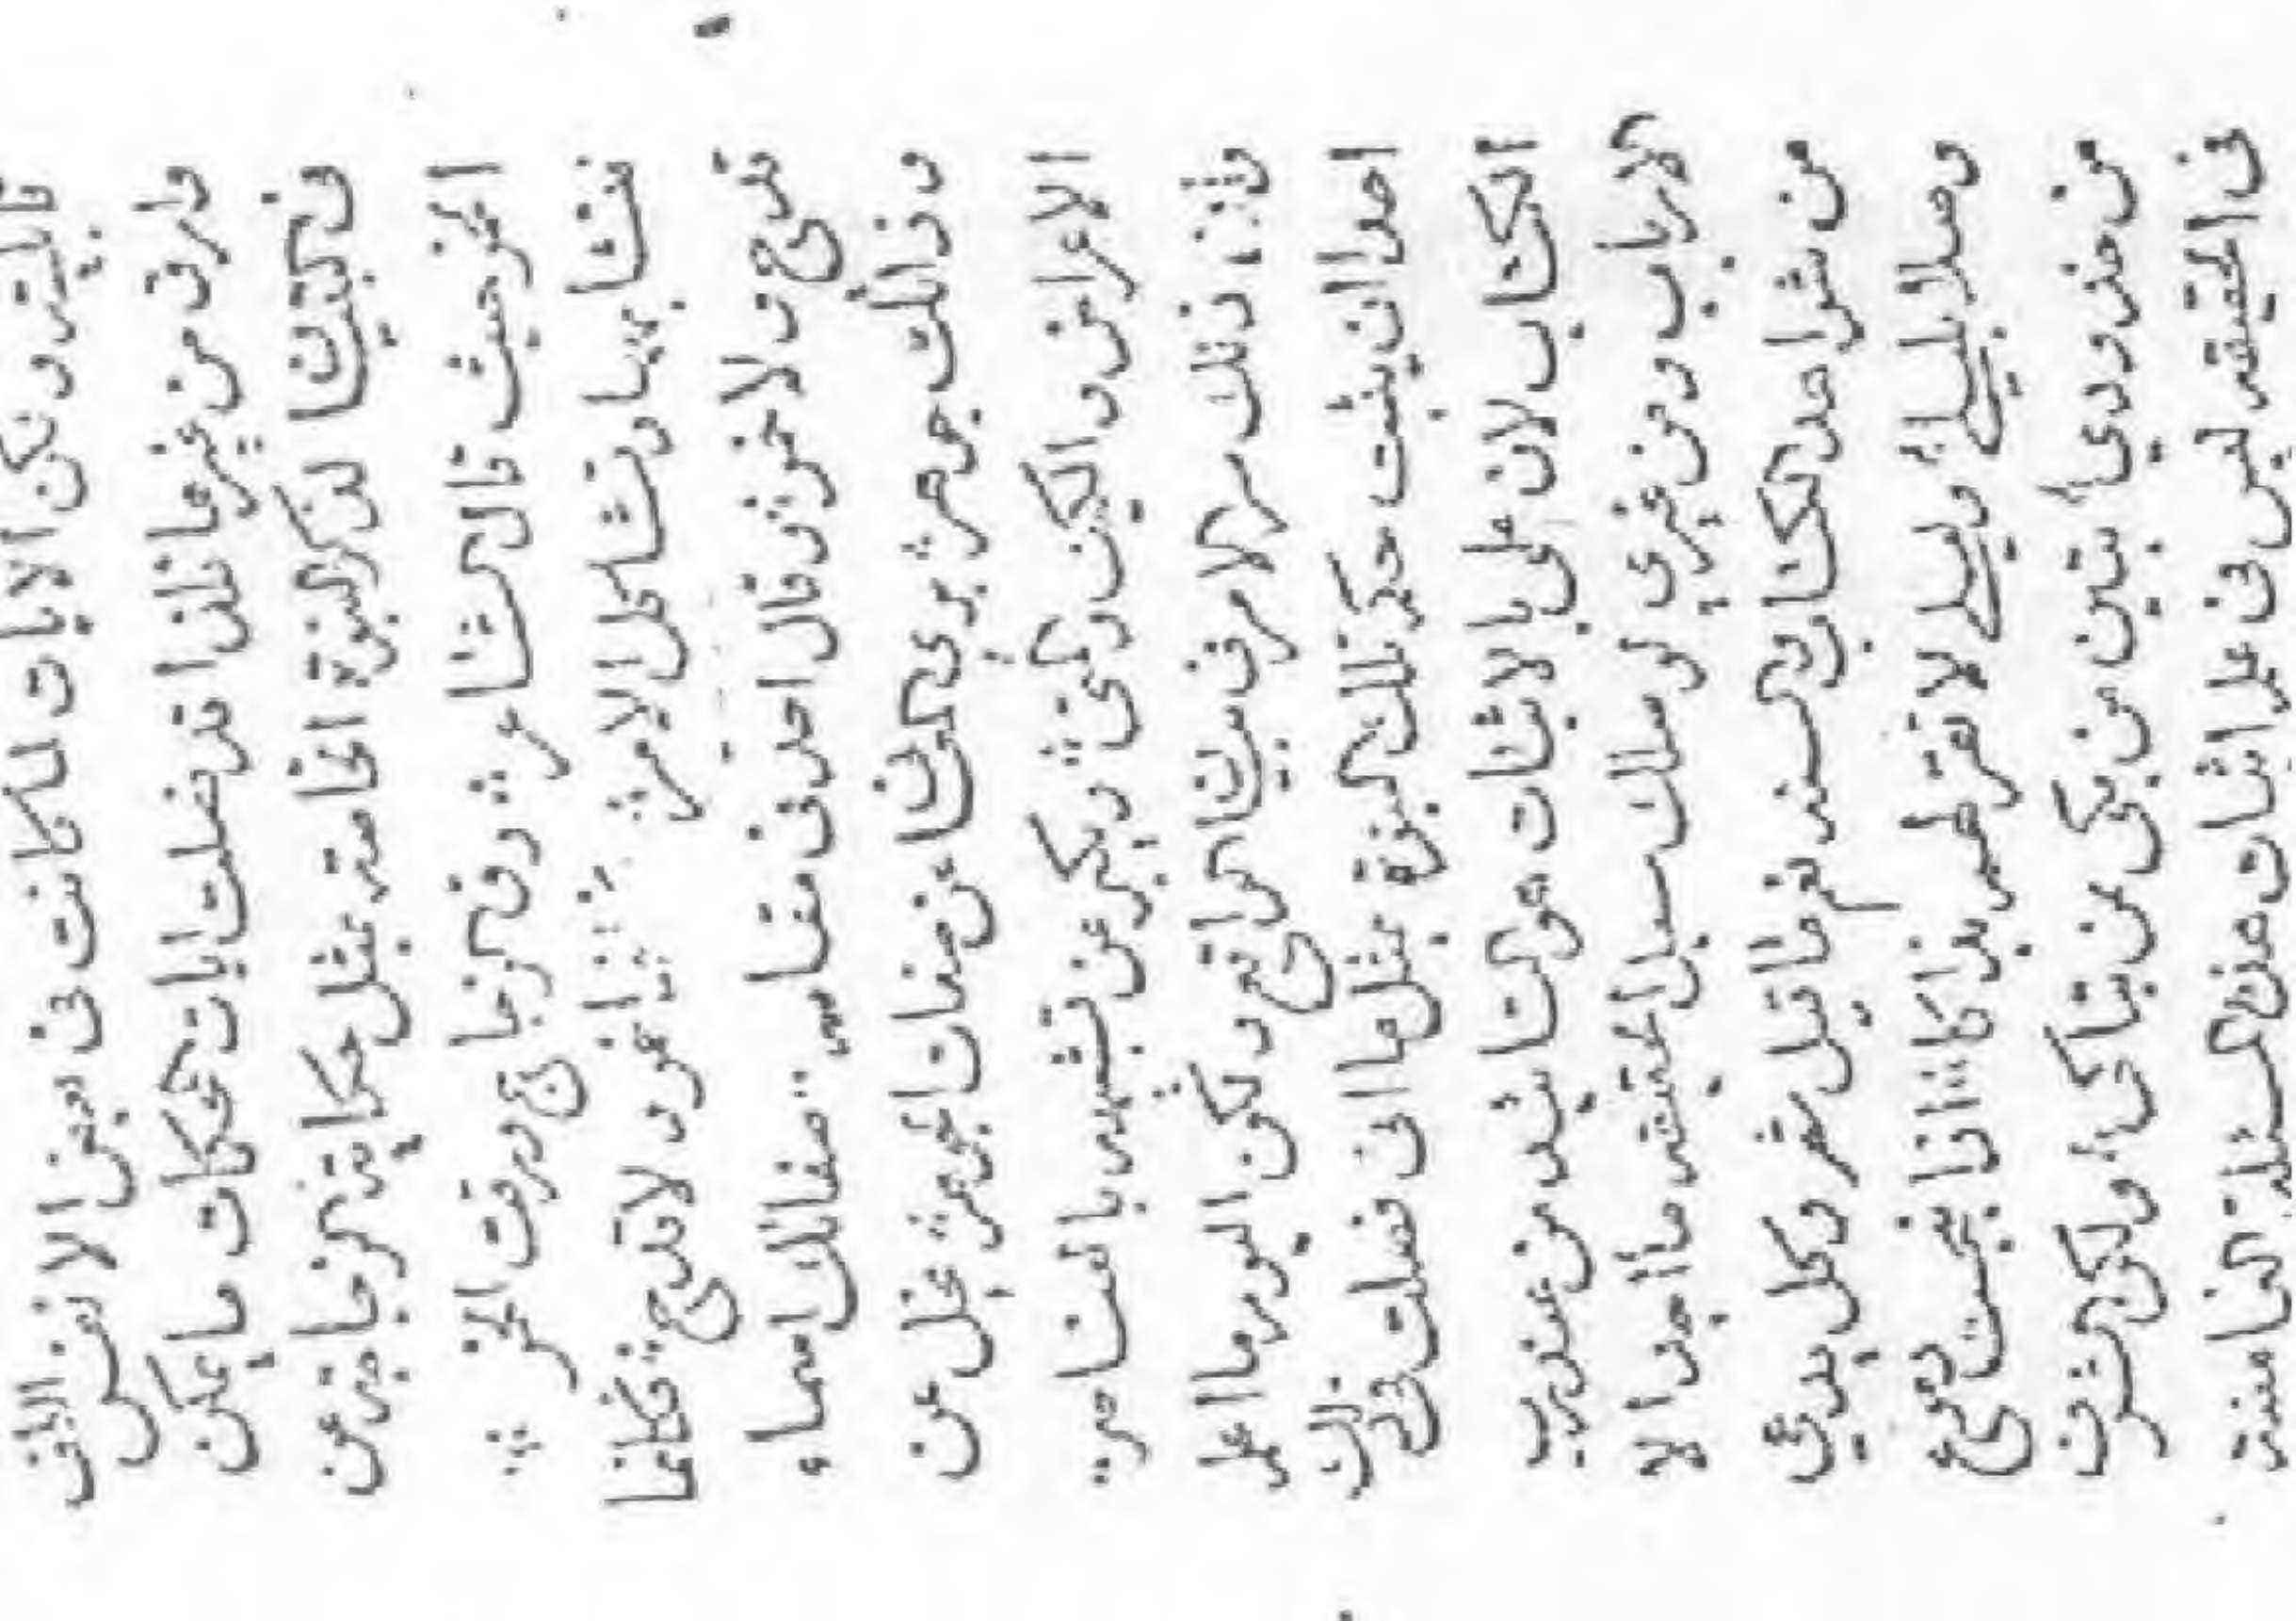 قابلیته ولکن الآیات لما کانت فی بعض الانفس الطف
وارق من غیرها فلذا قد فصلت ایات محکمات ما یمکن
فی البین لذکر النبوة الخاصة بمثل حکایة الزجاجة عن
الخمر حیث قال الشاعر رق الزجاج ورقت الخمر
فتشابها وتشاکل الامر خمر ولا قدح فکانما
قدح ولا خمر وقال احد فی مقامه صفاتک اسماء
و ذاتک جوهر بری عن صفات الجوهر یجل عن
الاعراض والکیف والمتی ویکبر عن تشبیهه بالعناصر
وان ذلک سر الامر فی بیان الواقع ولکن الیوم ما اعلم
احدا ان یثبت حکم تلک النبوة بمثل ما انی فصلت فی ذلک
الکتاب لان علمی بالاثبات هو من عند رب
الارباب ومن غیری لو سلک سبل الحقیقه ما اجد الا
من شواهد الکتاب والسنة نعم ما قیل شعر وکل یدعی
وصلا بلیلی ولیلی لا تقر لهم بذاکا اذا انبجست دموع
من خدود تبین من بکی ممن تباکی ولکن
فی الحقیقه لیس فی علم اثبات هذه المسئلة الغامضة